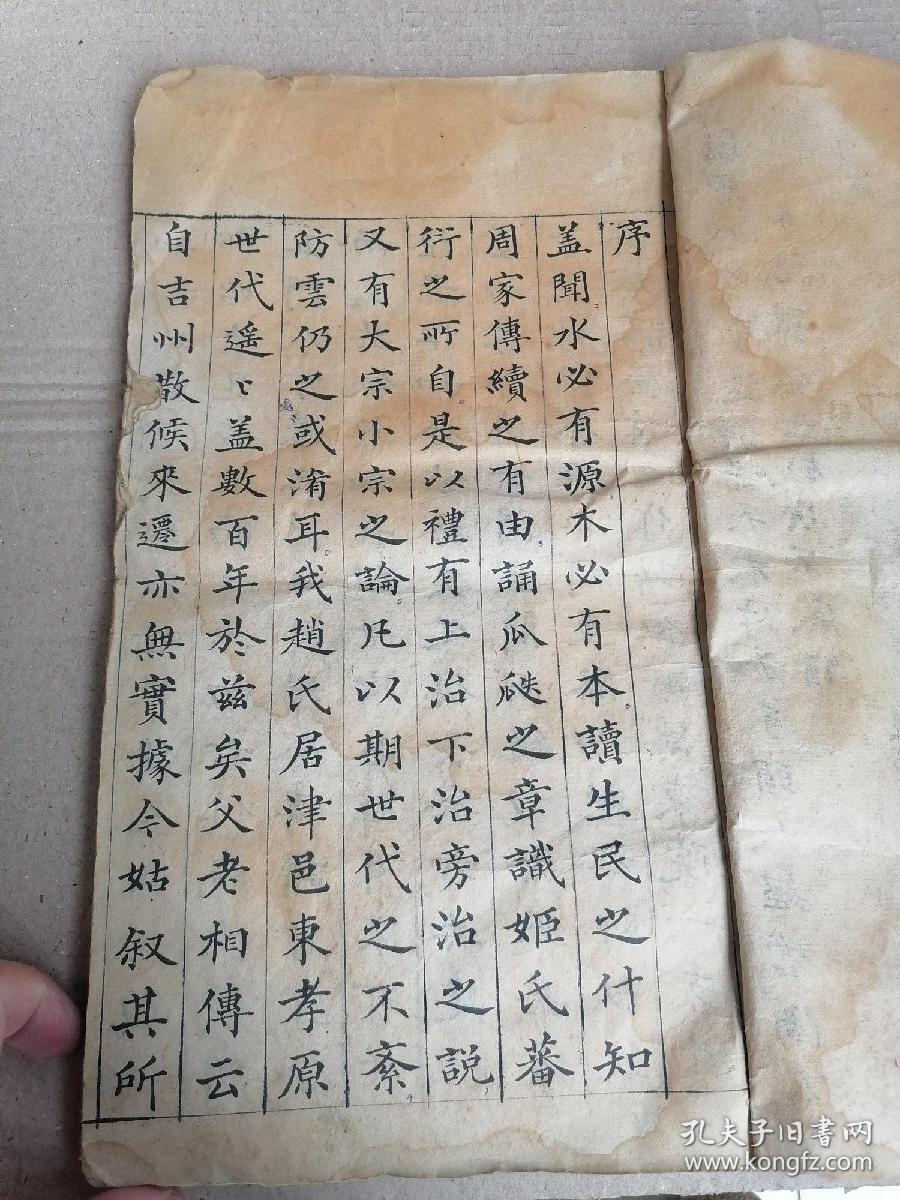 序
盖聞水必有源木必有本讀生民之什知
周家傳續之有由誦瓜瓞之章識姬氏蕃
衍之所自是以禮有上治下治旁治之説
又有大宗小宗之論凡以期世代之不紊
防雲仍之或淆耳我趙氏居津邑東孝原
世代遥〻盖數百年於兹矣父老相傳云
自吉州散候來遷亦無實據今姑叙其所
孔夫子旧書网
www.kongfz.com